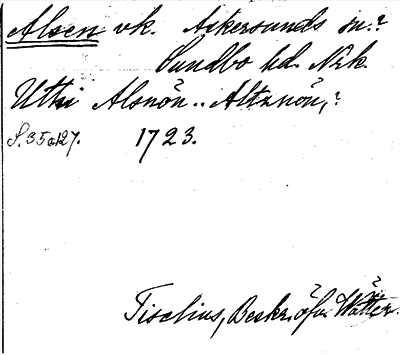 Alsen vk. Askersunds sn.?
Sundbo hd. Nrk.
Uthi Alsnön.. Altznön,?
S. 35 o. 127. 1723.
Tiselius, Beskr. öfv. Wätter.